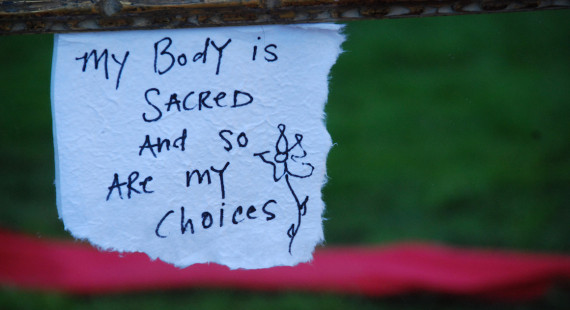 My Body is
SACRED
And so
ARe my
Choices